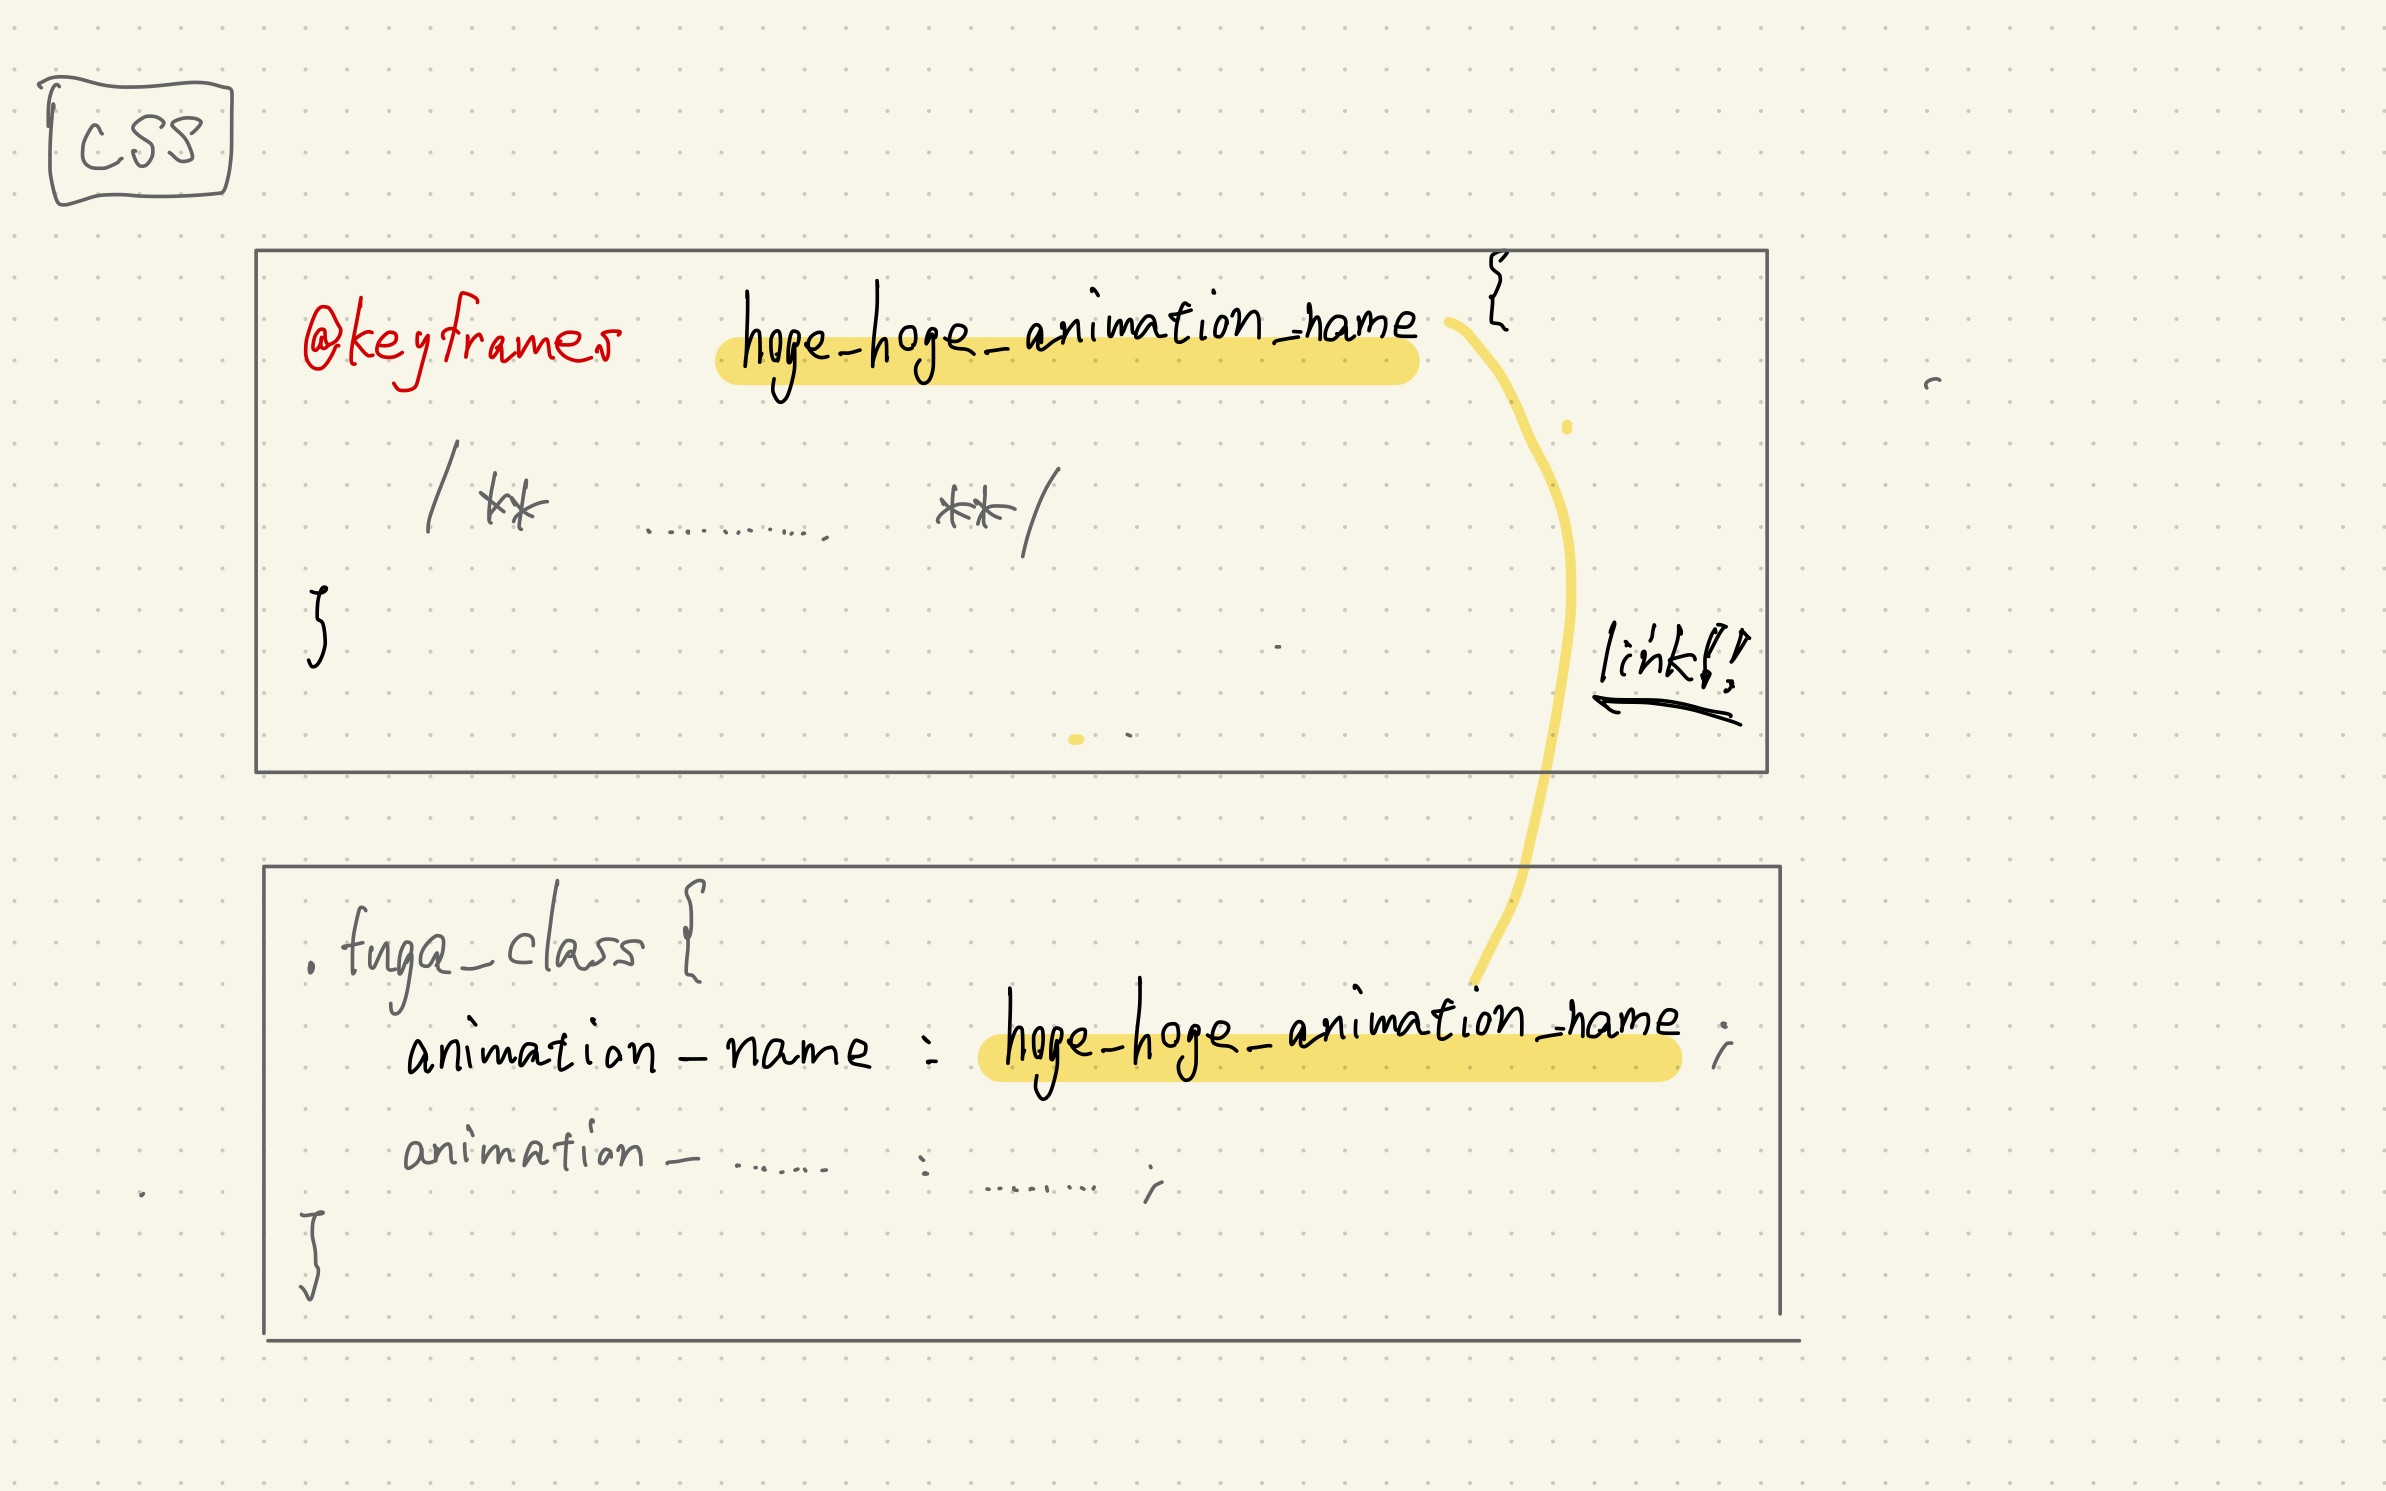 CSS
@keyframes hoge_hoge_animation_name {
/** .......... **/
}
link!!
.fuga_class {
animation-name : hoge_hoge_animation_name ;
animation- ....... : ....... ;
}